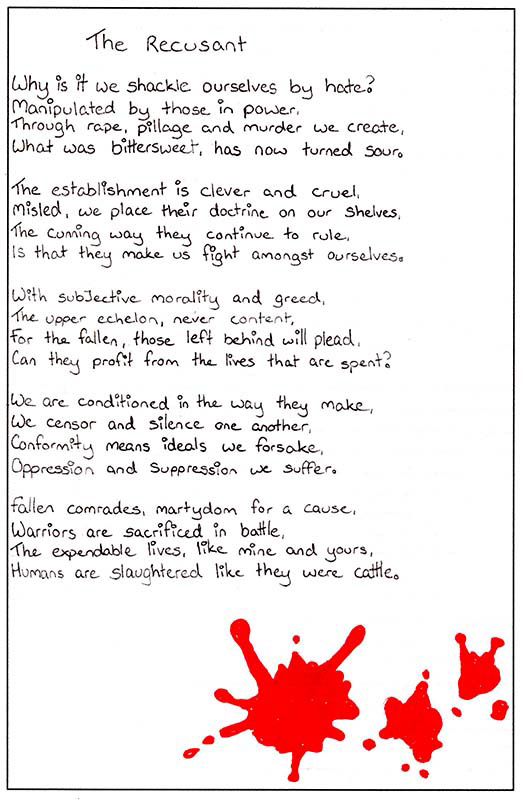 The Recusant
Why is it we shackle ourselves by hate?
Manipulated by those in power,
Through rape, pillage and murder we create,
What was bittersweet, has now turned sour.
The establishment is clever and cruel,
Misled, we place their doctrine on our shelves,
The cunning way they continue to rule,
Is that they make us fight amongst ourselves.
With subjective morality and greed,
The upper echelon, never content,
For the fallen, those left behind will plead,
Can they profit from the lives that are spent?
We are conditioned in the way they make,
We censor and silence one another,
Conformity means ideals we forsake,
Oppression and suppression we suffer.
Fallen comrades, martydom for a cause,
Warriors are sacrificed in battle,
The expendable lives, like mine and yours,
Humans are slaughtered like they were cattle.